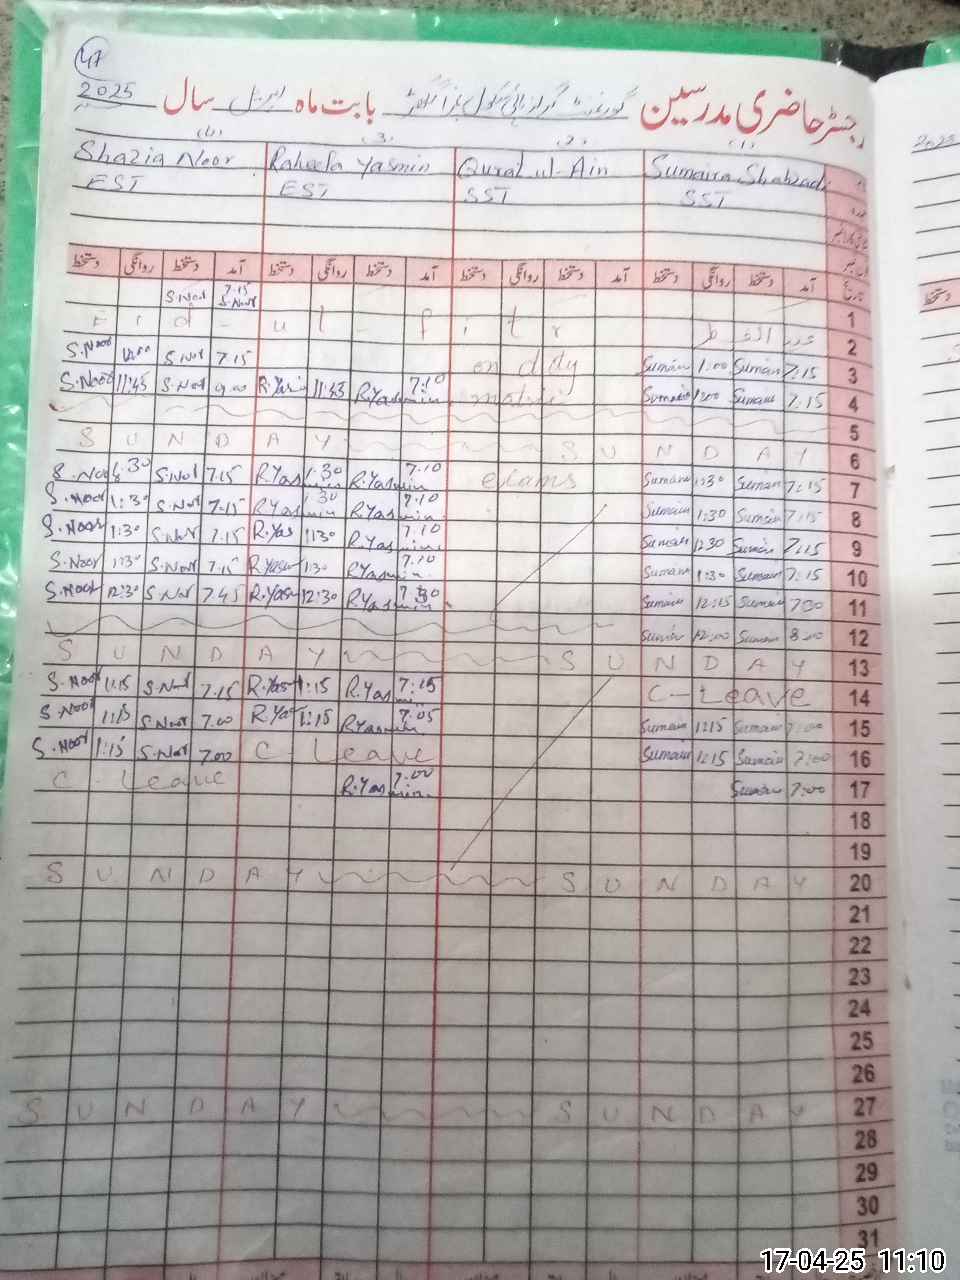 47
رجسٹر حاضری مدرسین گورنمنٹ گرلز ہائی سکول بابت ماہ اپریل سال 2025
(1) (2) (3) (4)
Sumaira Shahzadi Qurat ul-Ain Raheela Yasmin Shazia Noor
SST SST EST EST
تاریخ آمد دستخط روانگی دستخط آمد دستخط روانگی دستخط آمد دستخط روانگی دستخط آمد دستخط روانگی دستخط
1 7.15 S.Noor S.Noor
2 عید الفطر Eid-ul-fitr
3 7:15 Sumair 1:00 Sumair on duty 7.15 S.Noor S.Noor
4 7:15 Sumair 1:00 Sumair 7:10 R.Yasmin 11:45 R.Yas 9.00 S.Noor 11:45 S.Noor
5
6 SUNDAY SUNDAY
7 7:15 Sumair 1:30 Sumair exams 7.10 R.Yasmin 1:30 R.Yasmin 7.15 S.Noor 1:30 S.Noor
8 7:15 Sumair 1:30 Sumair 7.10 R.Yasmin 1:30 R.Yasmin 7.15 S.Noor 1:30 S.Noor
9 7:15 Sumair 12:30 Sumair 7.10 R.Yasmin 1:30 R.Yas 7.15 S.Noor 1:30 S.Noor
10 7:15 Sumair 1:30 Sumair 7.10 R.Yasmin 1:30 R.Yasm 7.15 S.Noor 1:30 S.Noor
11 7:00 Sumair 12:15 Sumair R.Yasmin 12:30 R.Yasm 7.45 S.Noor 12:30 S.Noor
12 8:00 Sumair 12:00 Sumair
13 SUNDAY SUNDAY
14 C-Leave 7:15 R.Yas 1:15 R.Yas 7.15 S.Noor 1:15 S.Noor
15 7:00 Sumair 1:15 Sumair 7:05 R.Yasmin 1:15 R.Yas 7.00 S.Noor 1:15 S.Noor
16 7:00 Sumair 1:15 Sumair C-Leave 7.00 S.Noor 1:15 S.Noor
17 7:00 Sumair 7:00 R.Yasmin C-Leave
18
19
20 SUNDAY SUNDAY
21
22
23
24
25
26
27 SUNDAY SUNDAY
28
29
30
31
2025
دستخط
17-04-25 11:10